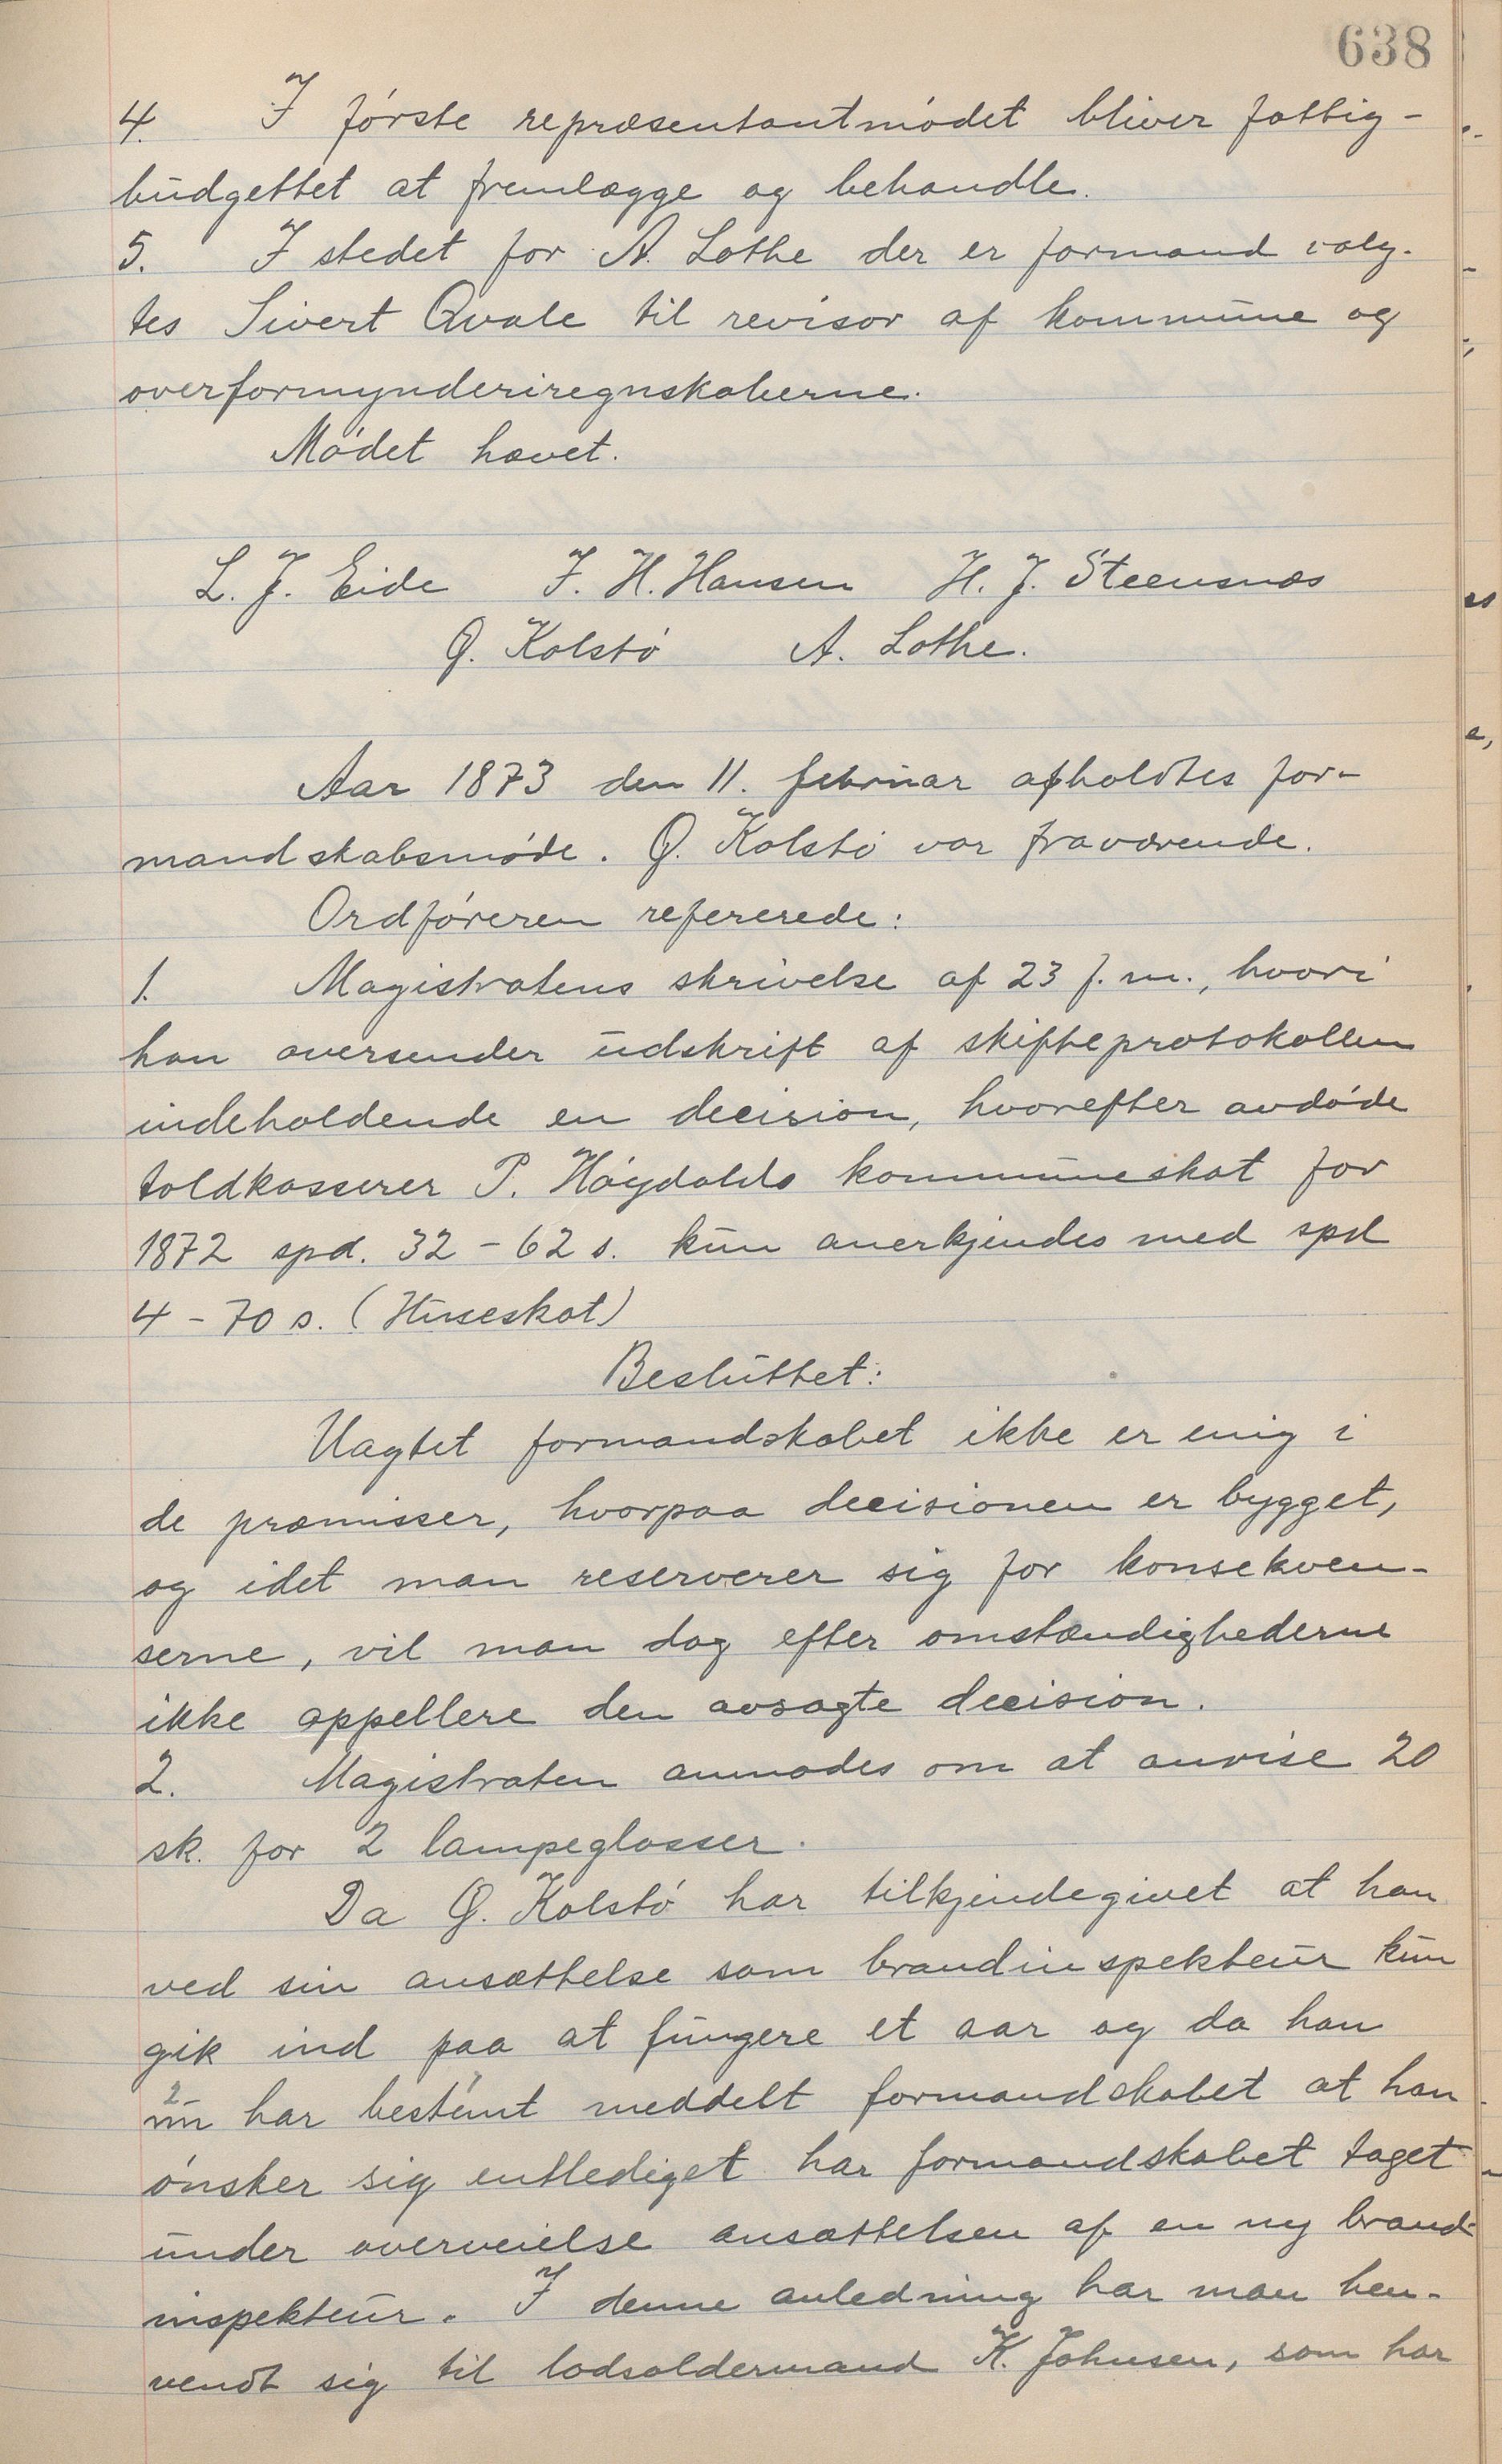 638
4. I første repræsentantmødet bliver fattig-
budgettet at fremlægge og behandle.
5. I stedet for A. Lothe der er formand valg-
tes Sivert Qvale til revisor af kommune og
overformynderiregnskaberne.
Mødet hævet.
L. J. Eide J. H. Hansen H. J. Steensnæs
Q. Kolstø A. Lothe.
Aar 1873 den 11. februar afholdtes for-
mandskabsmøde. Q. Kolstø var fraværende.
Ordføreren refererede:
1. Magistratens skrivelse af 23 f. m., hvori
han oversender udskrift af skifteprotokollen
indeholdende en decision, hvorefter avdøde
toldkasserer P. Høydahls kommuneskat for
1872 spd. 32 - 62 s. kun anerkjendes med spd
4 - 70 s. (Huseskat)
Besluttet:
Uagtet formandskabet ikke er enig i
de præmisser, hvorpaa decisionen er bygget,
og idet man reserverer sig for konsekven-
serne, vil man dog efter omstændighederne
ikke appellere den avsagte decision.
2. Magistraten anmodes om at anvise 20
sk. for 2 lampeglasser.
Da Q. Kolstø har tilkjendegivet at han
ved sin ansættelse som brandinspekteur kun
gik ind paa at fungere et aar og da han
nu har bestemt meddelt formandskabet at han
ønsker sig entlediget har formandskabet taget
under overveielse ansættelsen af en ny brand-
inspekteur. I denne anledning har man hen-
vendt sig til lodsoldermand K. Johnsen, som har